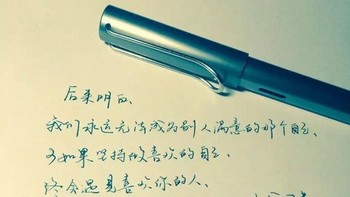 后来明白,
我们永远无法成为别人满意的那个自己,
可如果坚持做喜欢的自己,
终会遇见喜欢你的人。